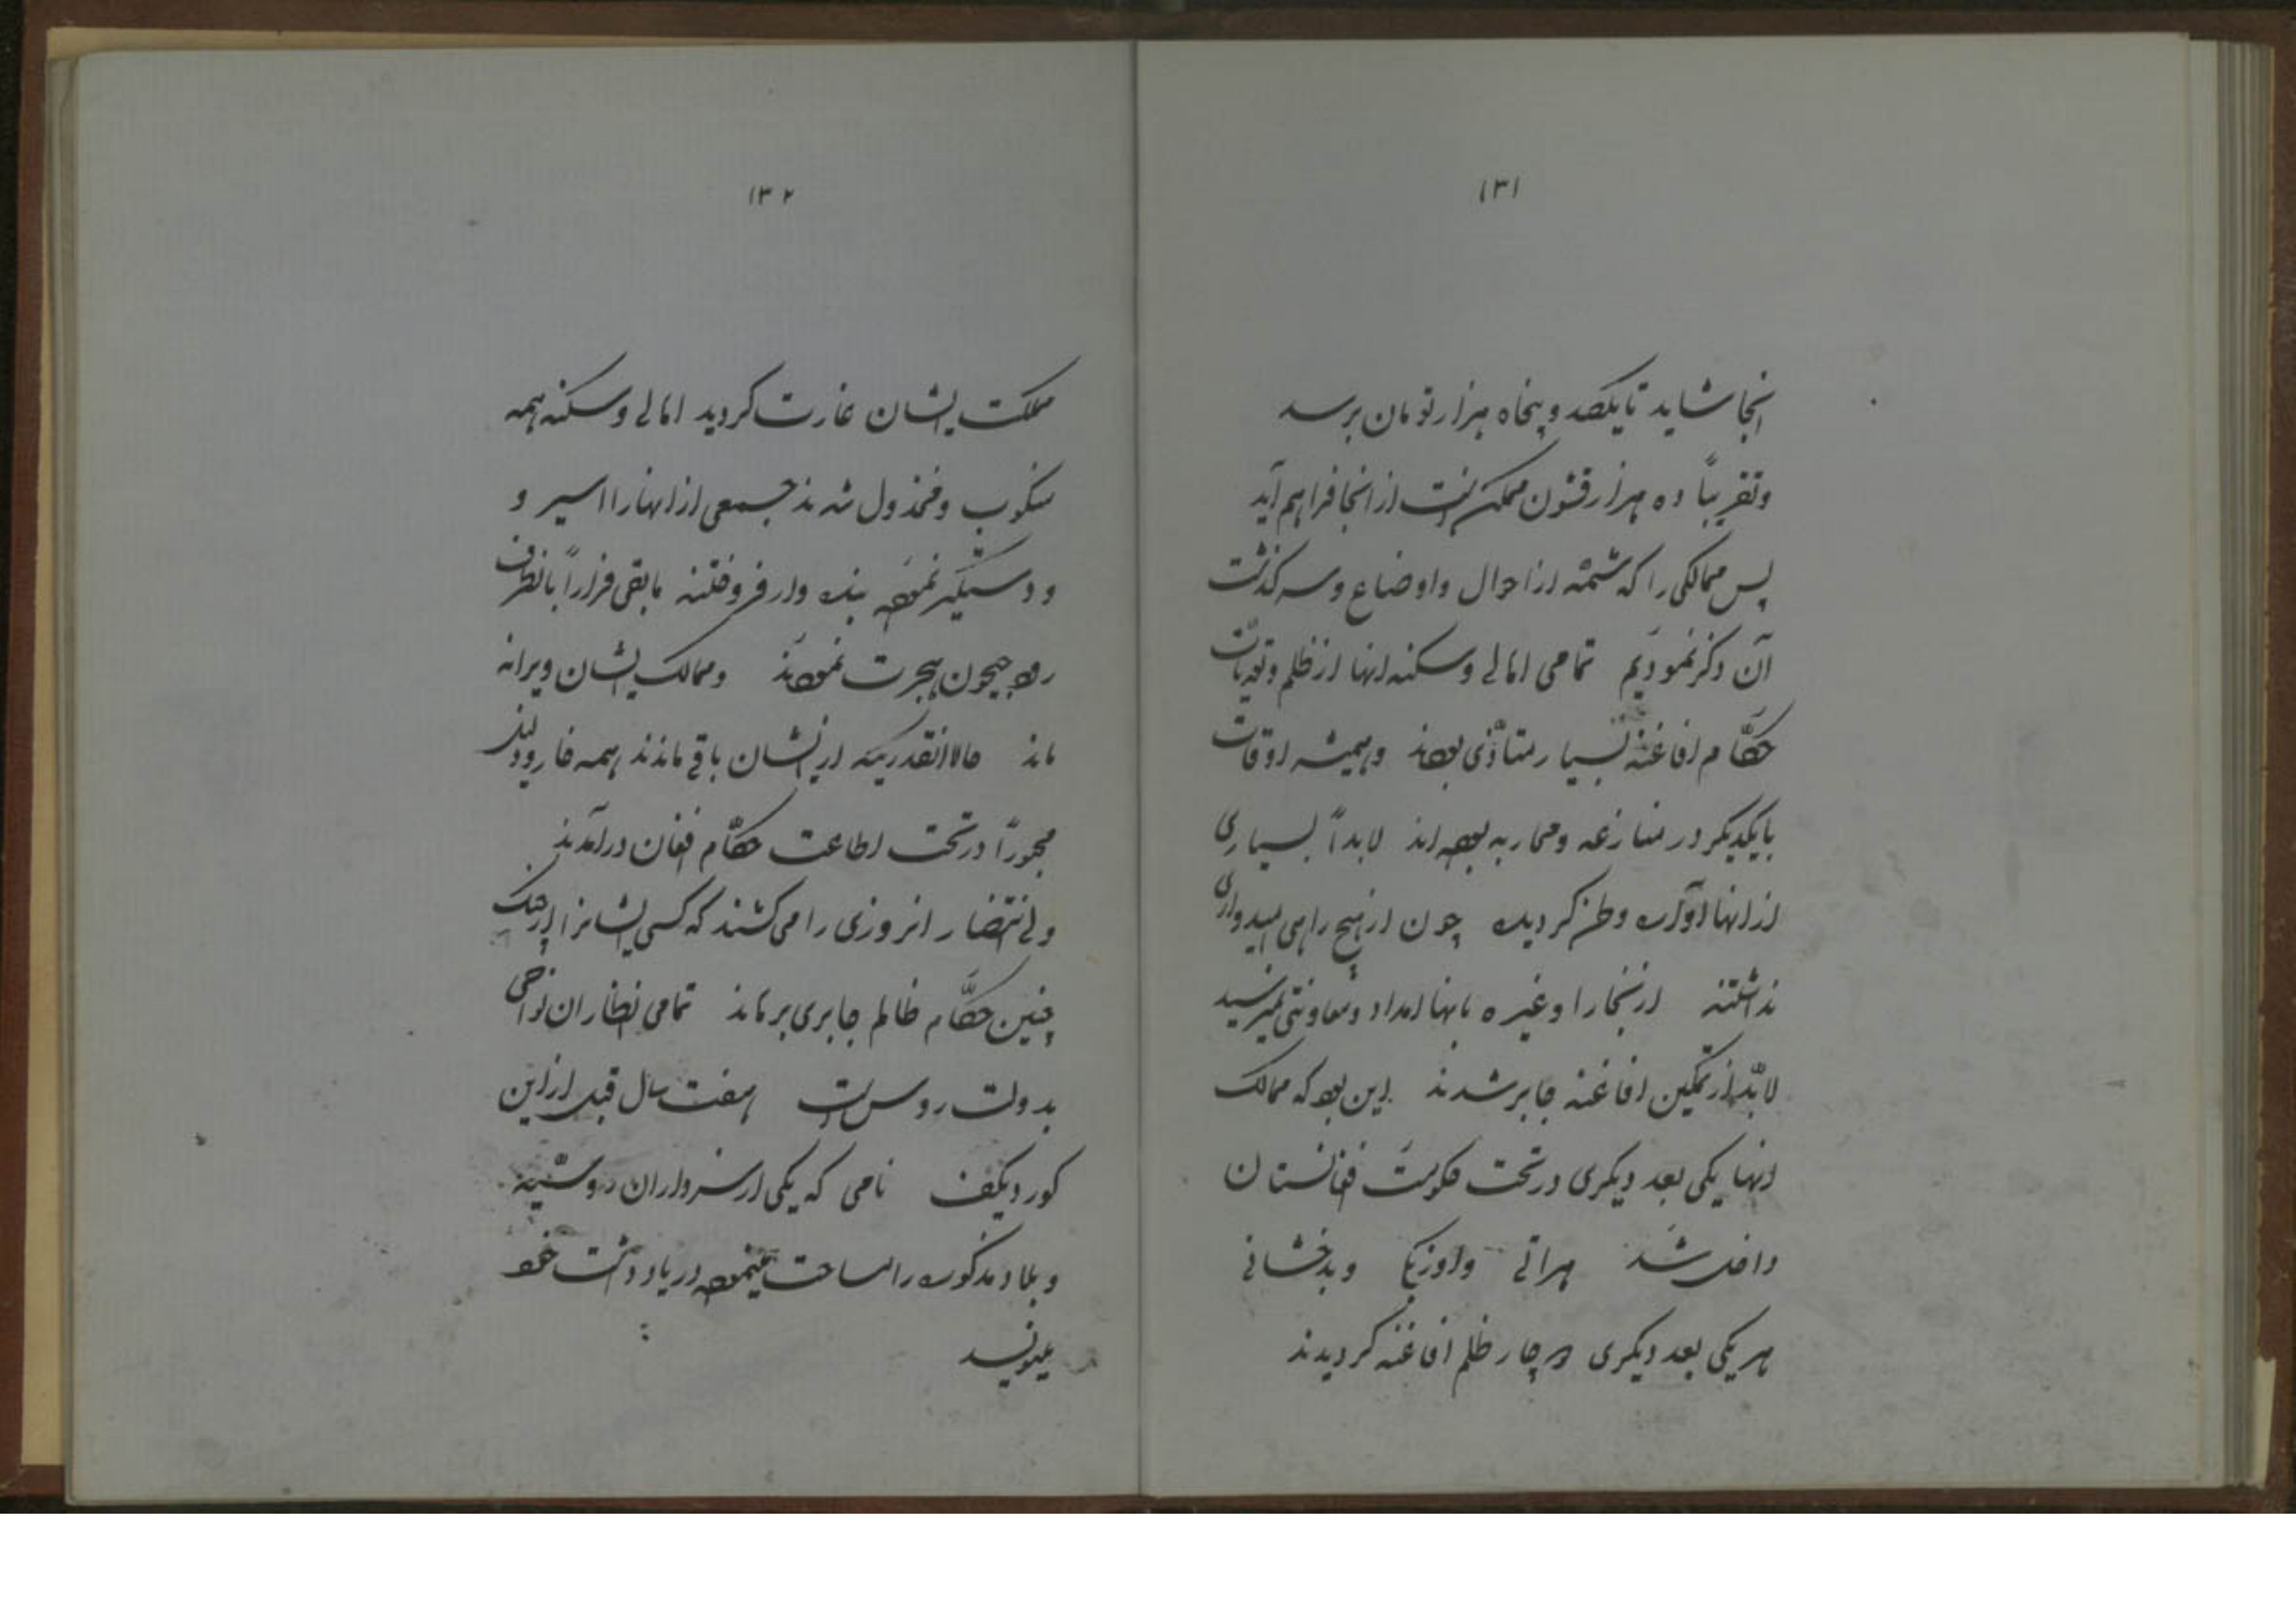 ۱۳۱
انجا شاید تا یکصد و پنجاه هزار تومان برسد
و تقریباً ده هزار قشون ممکن است از انجا فراهم آید
پس ممالکی را که شمهٔ از احوال و اوضاع و سرگذشت
آن ذکر نمودیم تمامی اهالی و سکنه انها از ظلم و تعدیات
حکّام افاغنه بسیار متأذّی بوده‌اند و همیشه اوقات
با یکدیگر در منازعه و محاربه بوده‌اند لابداً بسیاری
از انها آواره وطن گردیده چون از هیچ راهی امیدواری
نداشتند از بخارا و غیره بانها امداد و معاونتی نمیرسید
لابدّ از تمکین افاغنه جابر شدند این بود که ممالک
انها یکی بعد دیگری در تحت حکومت افغانستان
داخل شد هراتی و اوزبک و بدخشانی
هر یکی بعد دیگری دچار ظلم افاغنه گردیدند
۱۳۲
مملکت ایشان غارت گردید اهالی و سکنه همه
منکوب و مخذول شدند جمعی از انها را اسیر و
و دستگیر نموده بنده وار فروختند مابقی فراراً بانطرف
رود جیحون هجرت نمودند و ممالک ایشان ویرانه
ماند حالا انقدریکه از ایشان باقی ماندند همه خار و ذلیل
مجبوراً در تحت اطاعت حکّام افغان درآمدند
ولی انتضار انروزی را می کشند که کسی ایشانرا از چنک
چنین حکّام ظالم جابری برهاند تمامی انظار ان نواحی
بدولت روس است هفت سال قبل از این
کوردیکف نامی که یکی از سرداران روسیّه
و بلاد مذکوره را سیاحت مینموده در یادداشت خود
مینویسد